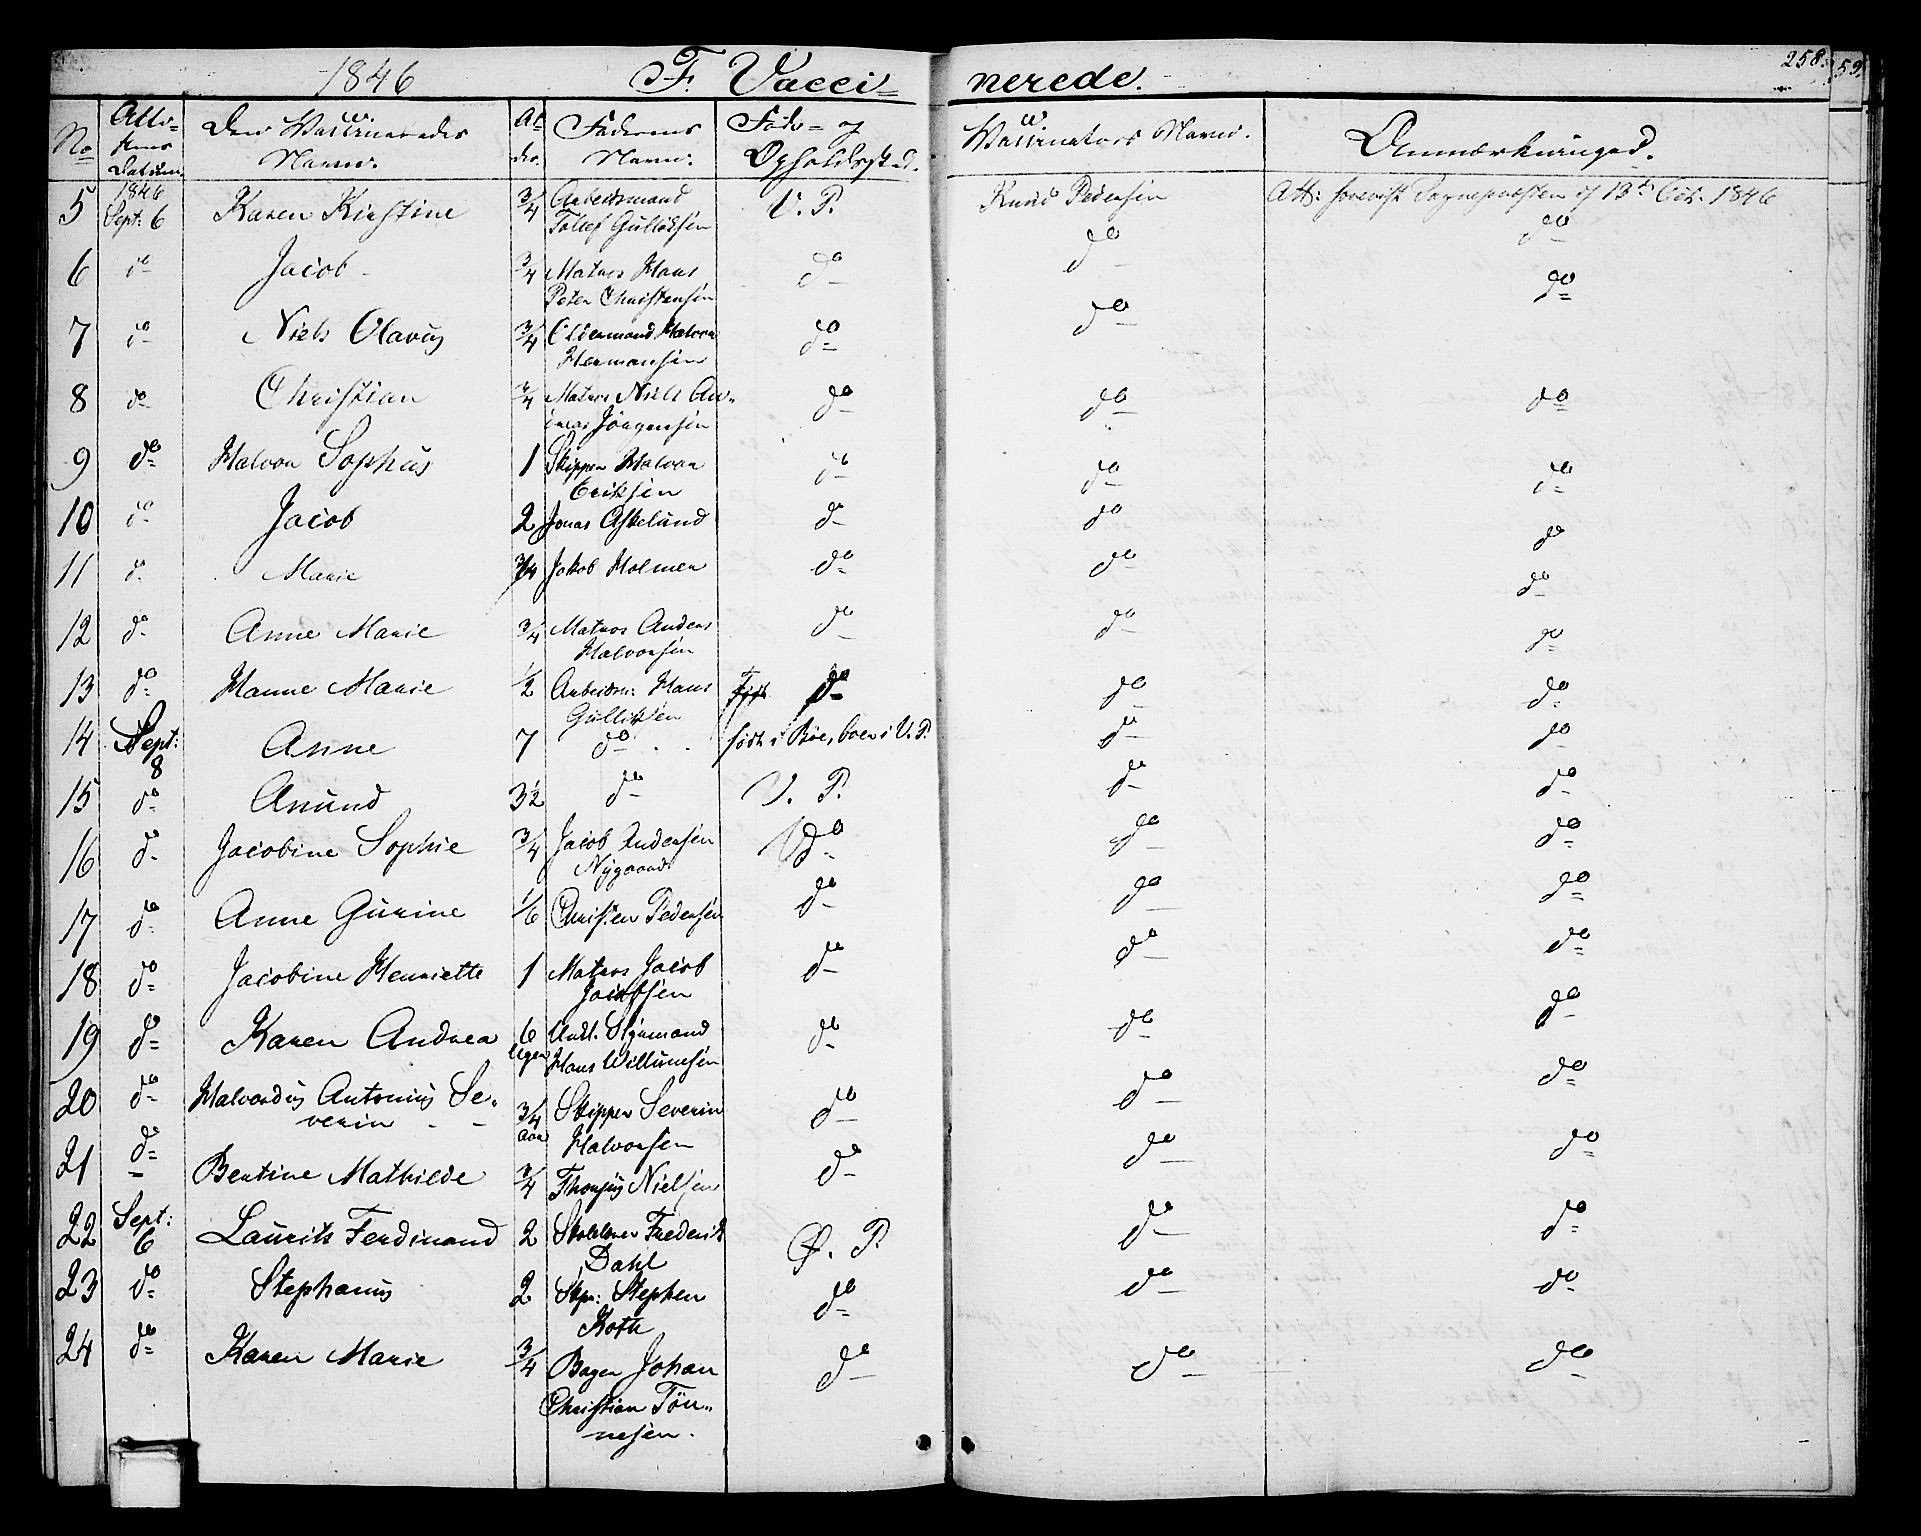 1846 F. Vacci= nerede. 258. 59.
No Attestens Datum. Den Vaccineredes Navn. Alder. Faderens Navn. Føde= og Opholdssted. Vaccinateurs Navn. Anmærkninger.
5 1846 Sept: 6 Karen Kirstine 3/4 Arbeidsmand V. P. Knud Pedersen Att: forevist Sognepræsten d 13t Oct. 1846
Tollef Gulliksen
6 do Jacob 3/4 Matros Hans do do do
Peter Christensen
7 do Niels Olavus 3/4 Oldermand Halvor do do do
Hermansen
8 do Christian 3/4 Matros Niels An= do do do
Jörgensen
9 do Halvor Sophus 1 Skipper Halvor do do do
Eriksen
10 do Jacob 2 Jonas Askelund do do do
11 do Marie 3/4 Jakob Holmen do do do
12 do Anne Marie 3/4 Matros Anders do do do
Halvorsen
13 do Hanne Marie 1/2 Arbeidsm: Hans do do do
Gulliksen
14 Sept: 8 Anne 7 do født i Böe, boer i V. P. do do
15 do Anund 3 1/2 do V. P. do do
16 do Jacobine Sophie 3/4 Jacob Andersen do do do
Nygaard
17 do Anne Gurine 1/6 Christen Pedersen do do do
18 do Jacobine Henriette 1 Matros Jacob do do do
Jacobsen
19 do Karen Andrea 6 Uger Undt. Styrmand do do do
Hans Willumsen
20 do Halvardus Antonius Se= 3/4 Aar Skipper Severin do do do
verin Halvorsen
21 do Bentine Mathilde 3/4 Thorsius Nielsen do do do
22 Sept: 6 Laurits Ferdinand 2 Skolelærer Frederik Ø. P. do do
Dahl
23 do Stephanus 2 Skpr: Stephen do do do
Roth
24 do Karen Marie 3/4 Bager Johan do do do
Christian Tön=
nesen.